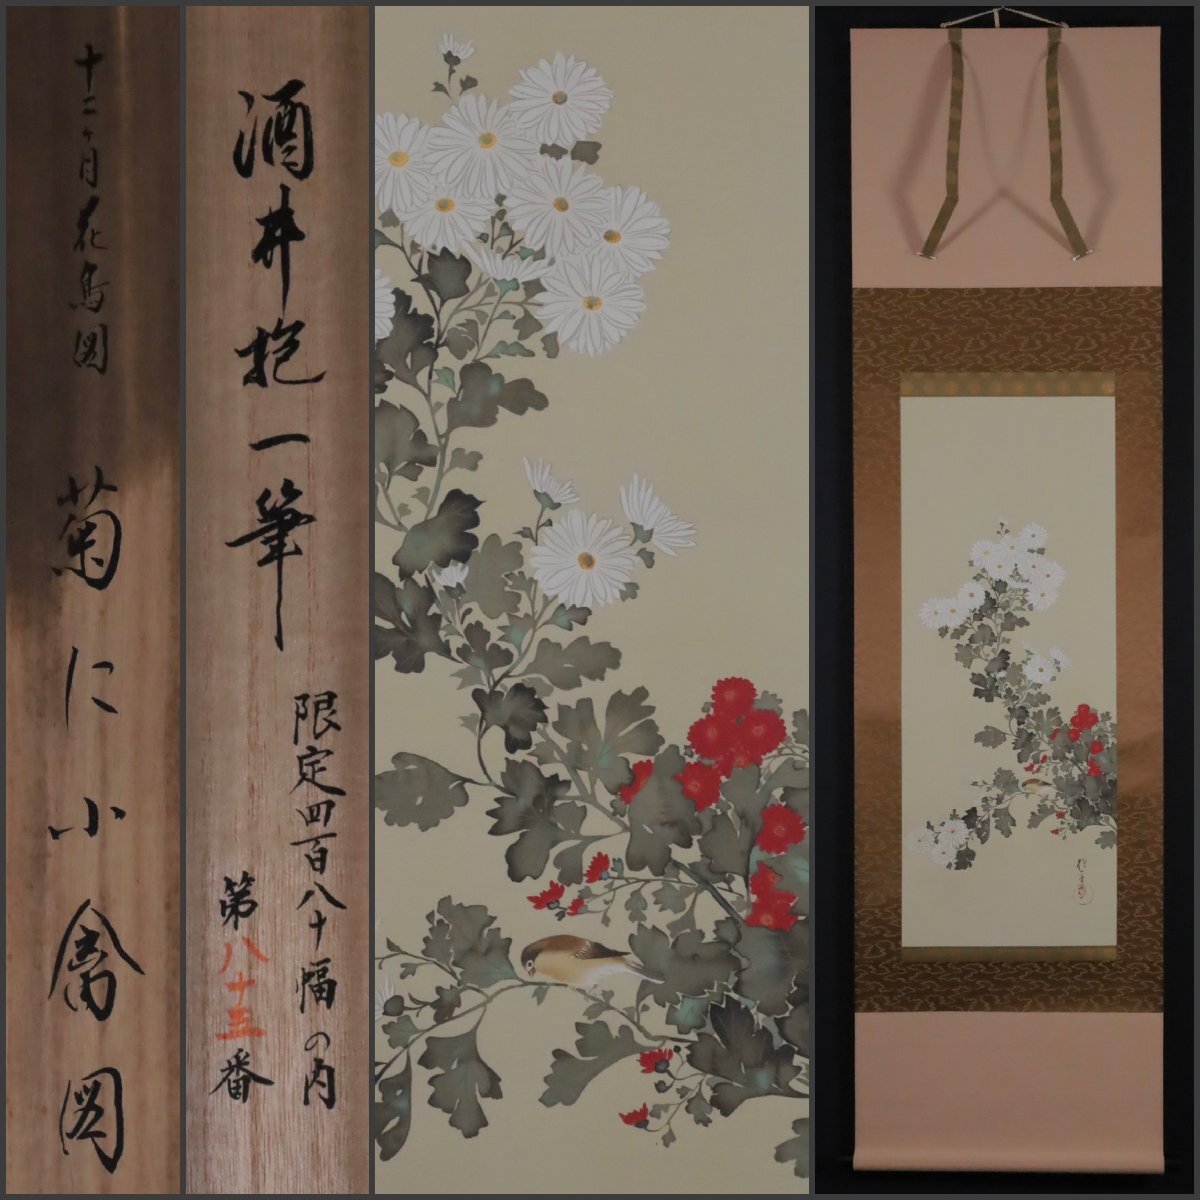 十二ヶ月花鳥図
菊に小禽図
酒井抱一筆
限定四百八十幅の内
第八十三番